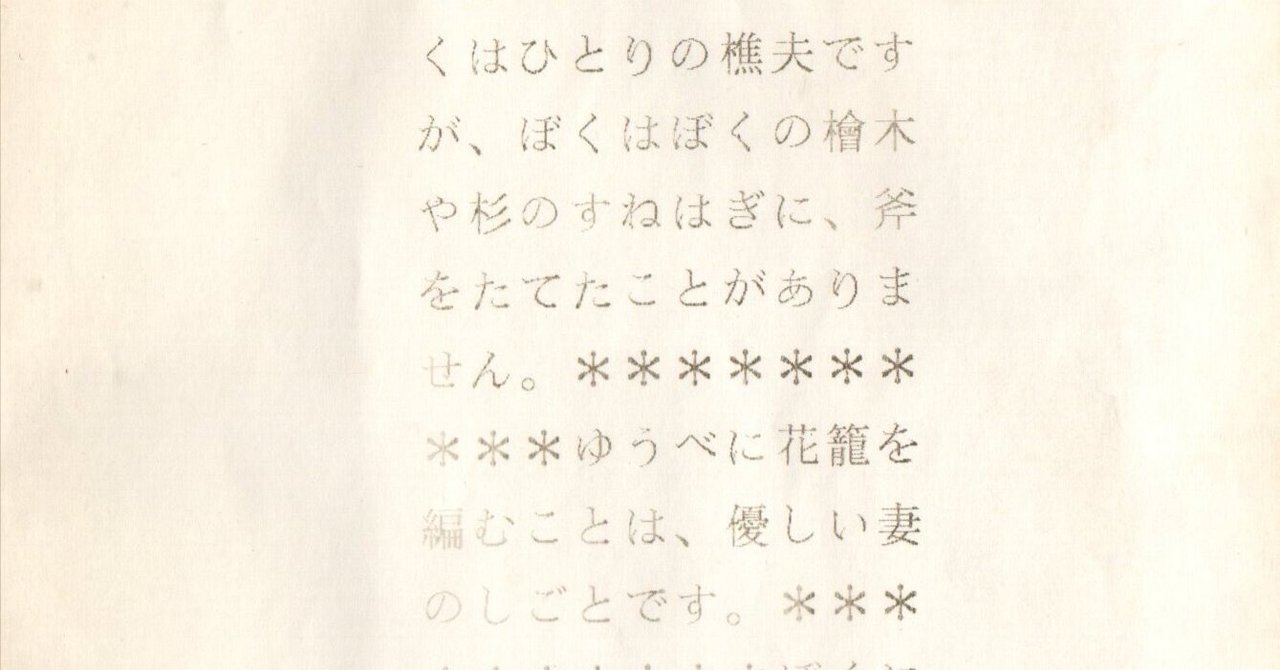 くはひとりの樵夫です
が、ぼくはぼくの檜木
や杉のすねはぎに、斧
をたてたことがありま
せん。＊＊＊＊＊＊＊
＊＊＊ゆうべに花籠を
編むことは、優しい妻
のしごとです。＊＊＊